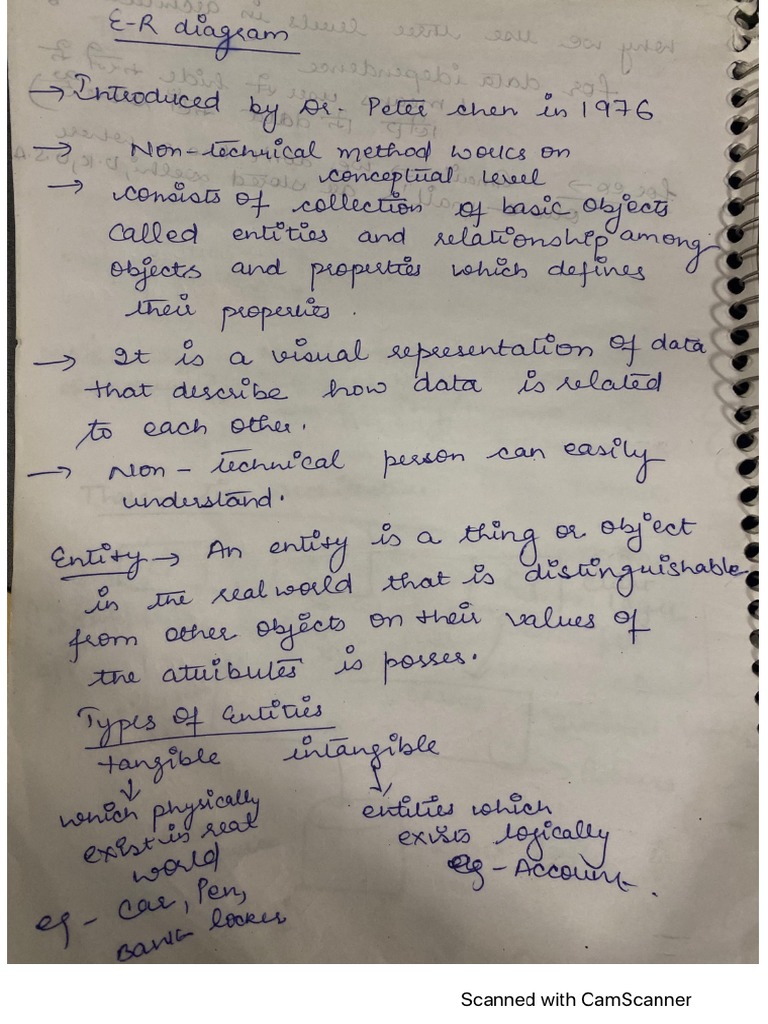 E-R diagram
→ Introduced by Dr. Peter chen in 1976
→ Non-technical method works on
conceptual level
→ consists of collection of basic objects
called entities and relationship among
objects and properties which defines
their properties.
→ It is a visual representation of data
that describe how data is related
to each other.
→ Non-technical person can easily
understand.
Entity → An entity is a thing or object
in the real world that is distinguishable
from other objects on their values of
the attributes is posses.
Types of Entities
tangible intangible
↓ ↓
which physically
exist is real
world
eg - Car, Pen,
Bank locker
entities which
exists logically
eg - Account.
Scanned with CamScanner